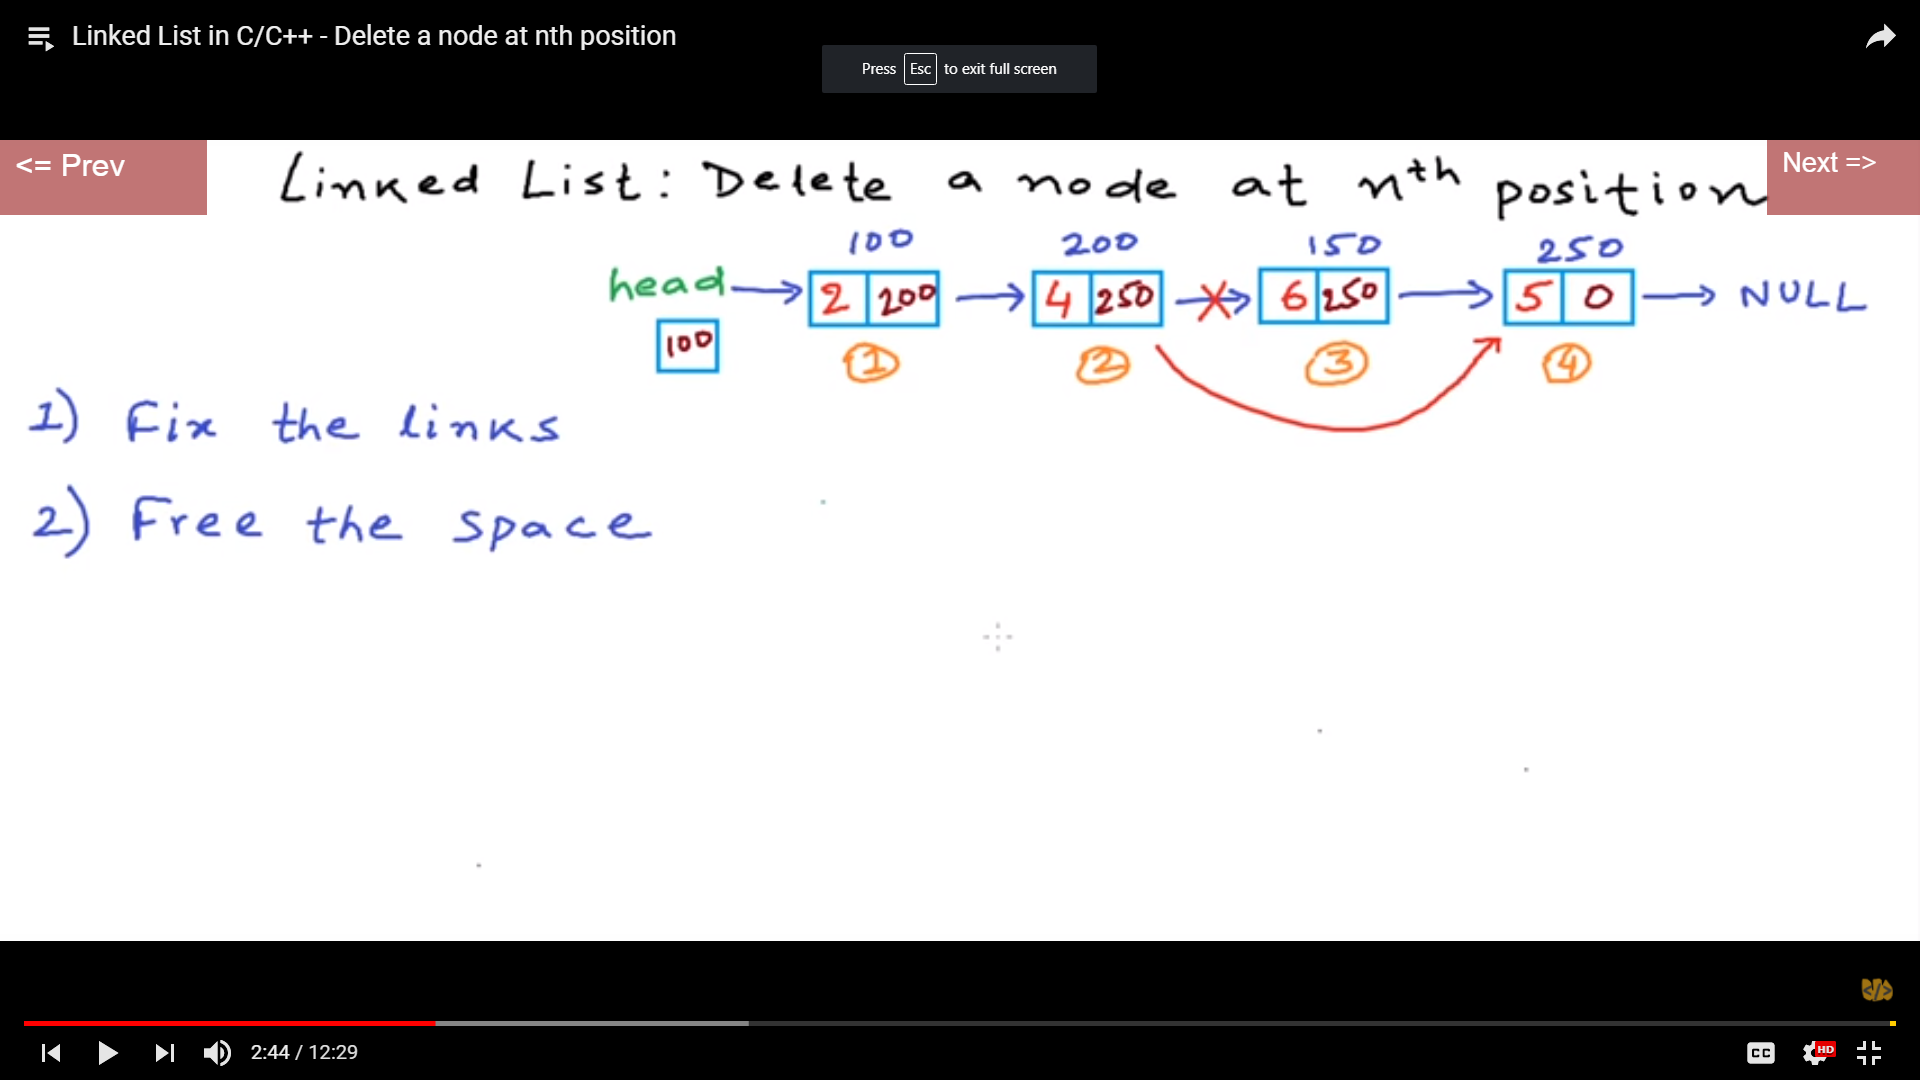 Linked List in C/C++ - Delete a node at nth position
Press Esc to exit full screen
<= Prev
Next =>
Linked List: Delete a node at nth position
100 200 150 250
head 2 200 4 250 6 250 5 0 NULL
100
1 2 3 4
1) Fix the links
2) Free the space
2:44 / 12:29
CC HD